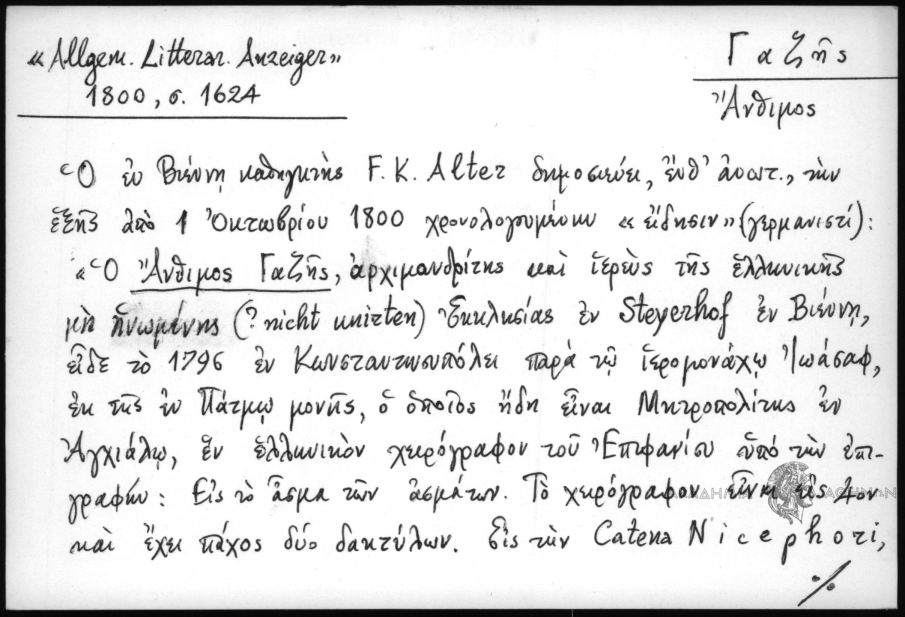 «Allgem. Litterar. Anzeiger»
1800, σ. 1624
Γαζῆς
Ἄνθιμος
Ὁ ἐν Βιέννῃ καθηγητὴς F. K. Alter δημοσιεύει, ἔνθ' ἀνωτ., τὴν
ἑξῆς ἀπὸ 1 Ὀκτωβρίου 1800 χρονολογουμένην «εἴδησιν» (γερμανιστί):
«Ὁ Ἄνθιμος Γαζῆς, ἀρχιμανδρίτης καὶ ἱερεὺς τῆς ἑλληνικῆς
μὴ ἡνωμένης (? nicht unirten) Ἐκκλησίας ἐν Steyerhof ἐν Βιέννῃ,
εἶδε τὸ 1796 ἐν Κωνσταντινουπόλει παρὰ τῷ ἱερομονάχῳ Ἰωάσαφ,
ἐκ τῆς ἐν Πάτμῳ μονῆς, ὁ ὁποῖος ἤδη εἶναι Μητροπολίτης ἐν
Ἀγχιάλῳ, ἓν ἑλληνικὸν χειρόγραφον τοῦ Ἐπιφανίου ὑπὸ τὴν ἐπι-
γραφήν: Εἰς τὸ ἆσμα τῶν ἀσμάτων. Τὸ χειρόγραφον εἶναι εἰς 4ον
καὶ ἔχει πάχος δύο δακτύλων. Εἰς τὴν Catena Nicephori,
./.